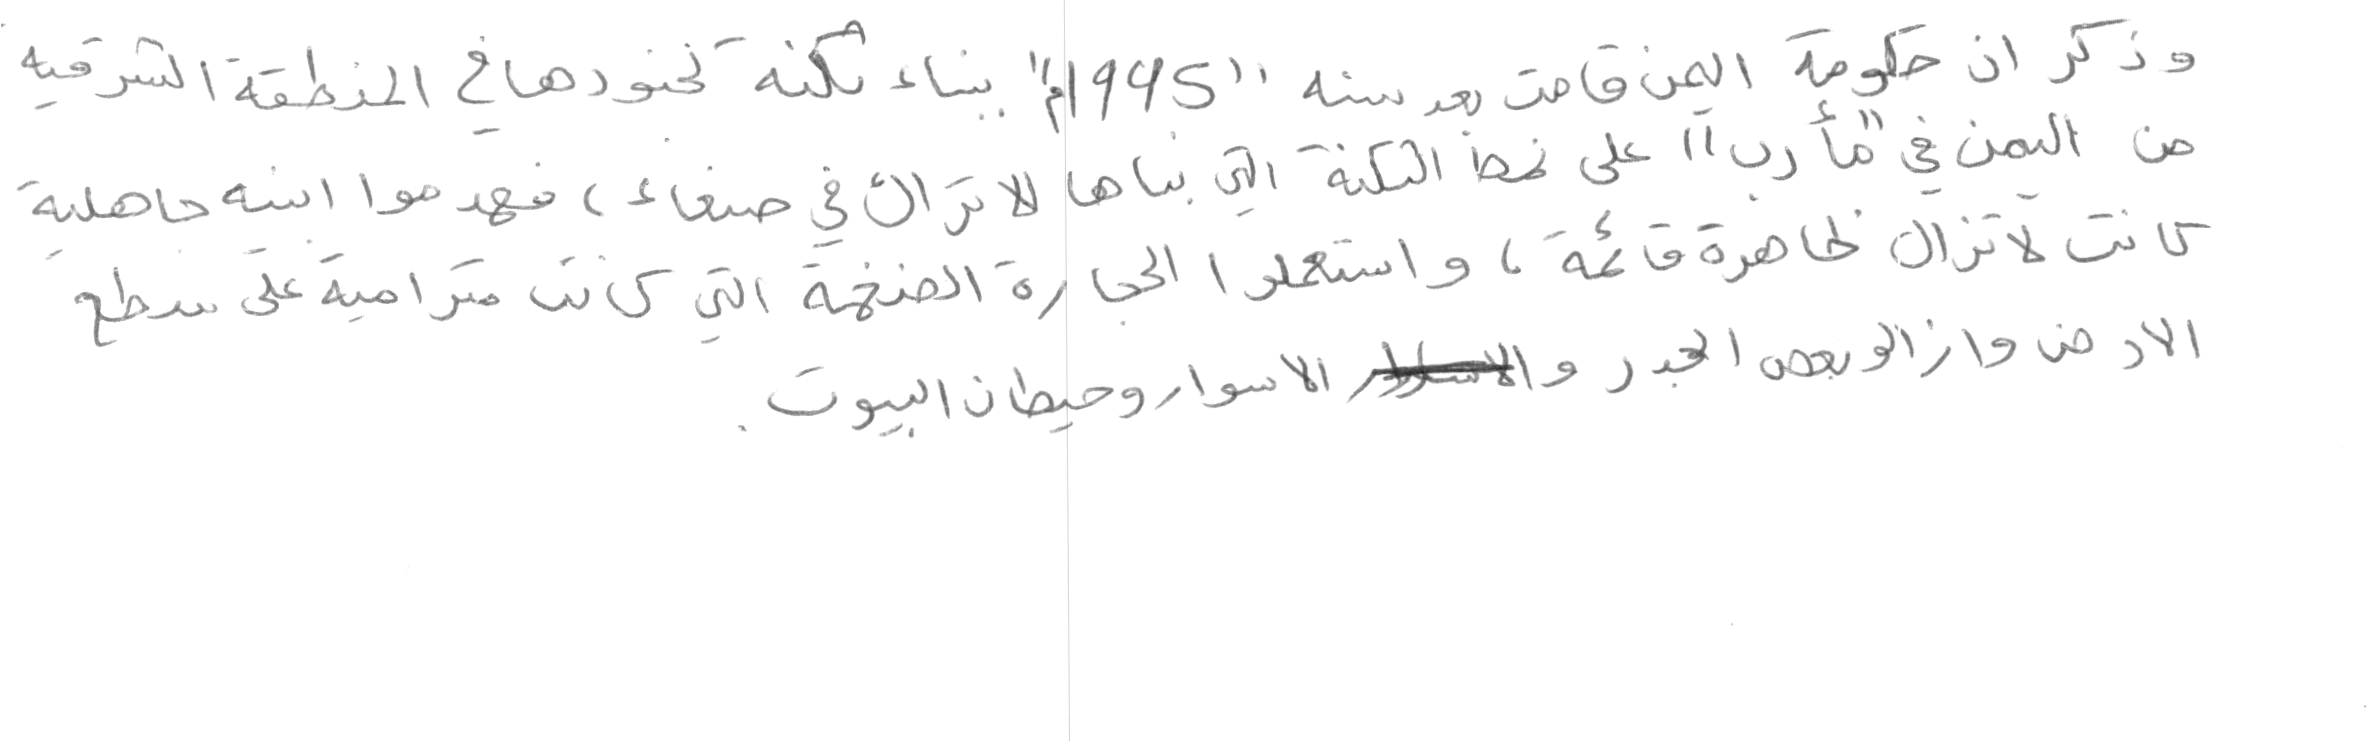 وذكر ان حكومة اليمن قامت بعد سنه "1945م" ببناء ثكنة لجنودها في المنطقة الشرقيه
من اليمن في "مأرب" على نمط الثكنة التي بناها لا تزال في صنعاء، فهدموا ابنيه جاهلية
كانت لا تزال ظاهرة قائمة، واستعملوا الحجارة الضخمة التي كانت مترامية على سطح
الارض وازالو بعض الجدر والاسوار وحيطان البيوت.